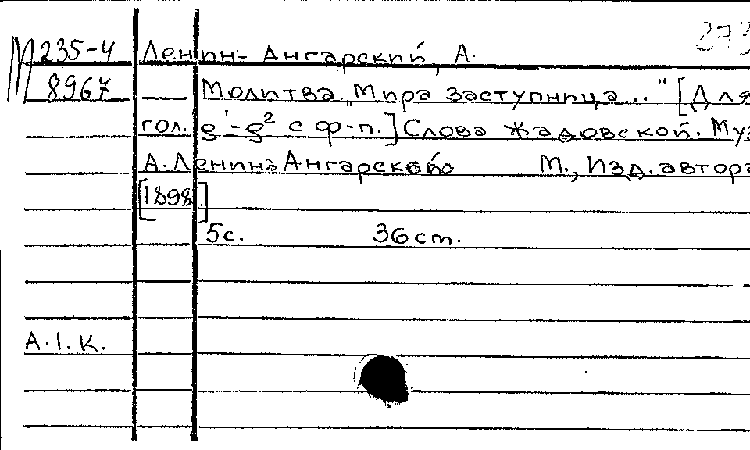 М 235-4 Ленин-Ангарский, А.
8967 Молитва „Мира заступница..." [Для
гол. g¹-g² с ф-п.] Слова Жадовской. Муз
А. Ленина Ангарского М., Изд. автора
[1898]
5с. 36cm.
А.I.К.